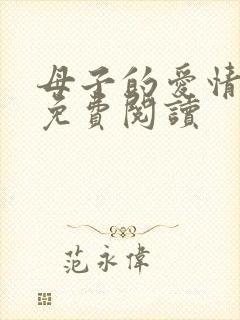 母子的愛情
免費閱讀
范永偉